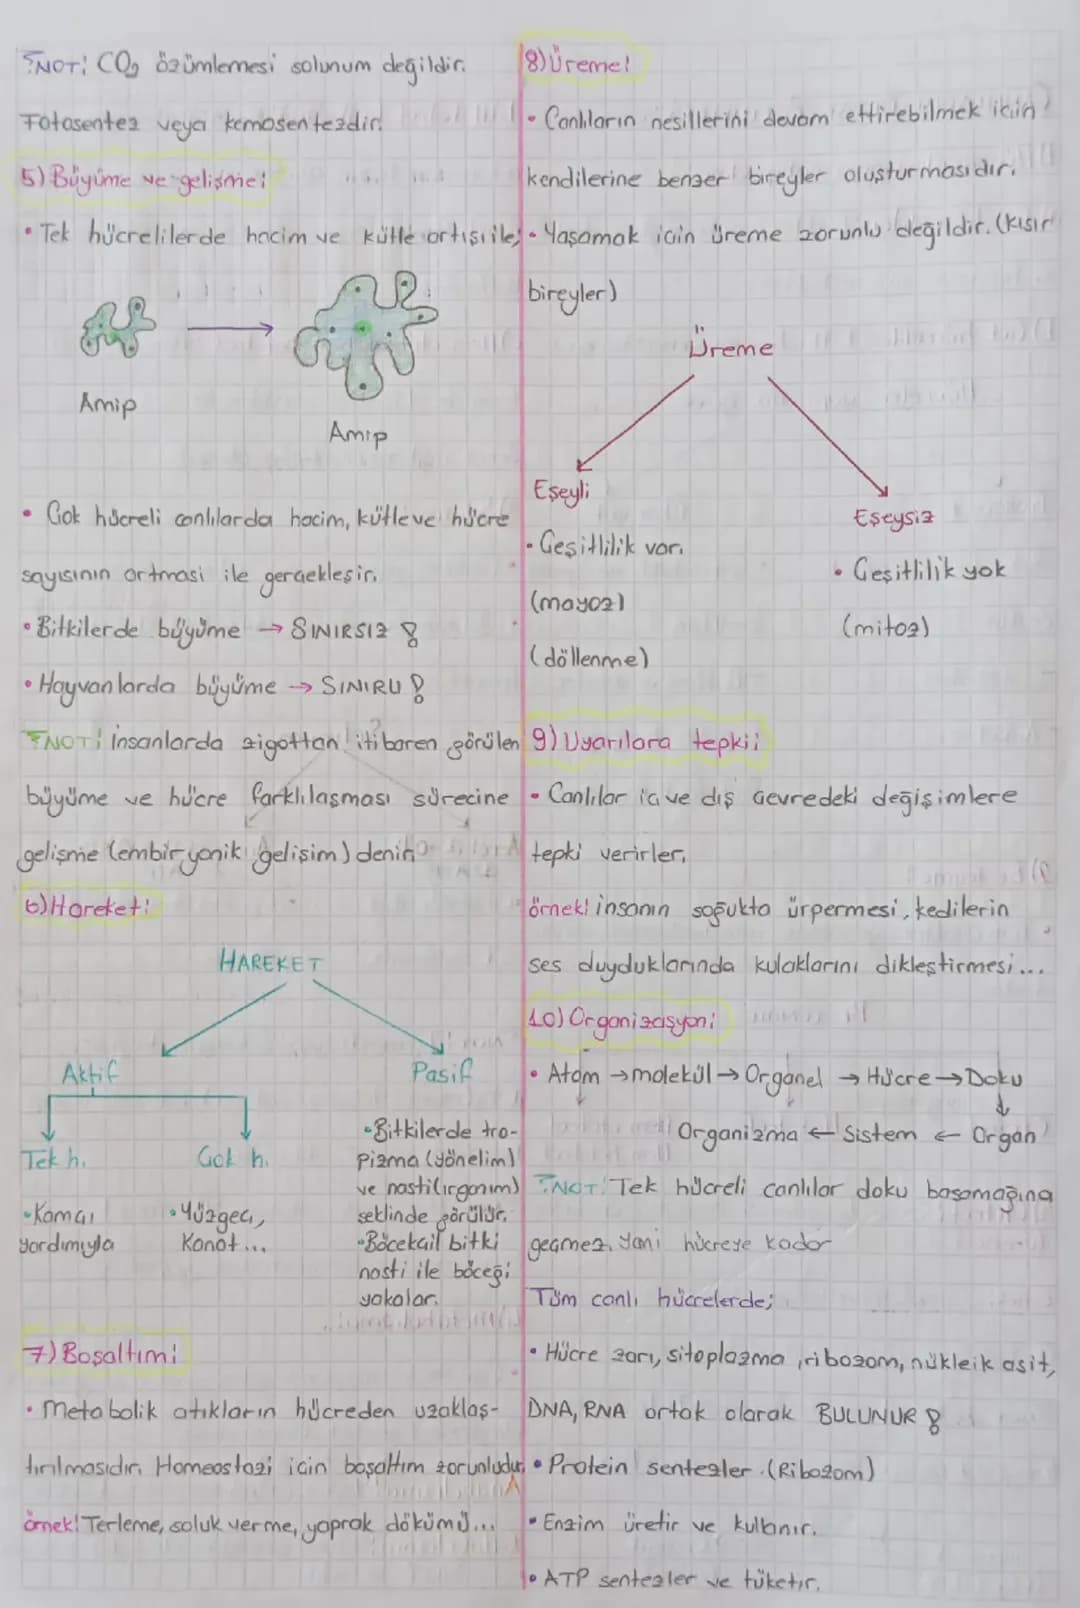 NOT: CO₂ özümlemesi solunum değildir.
Fotosentez veya kemosentezdir.
5) Büyüme ve gelişme:
• Tek hücrelilerde hacim ve kütle artışı ile;
Amip
Amip
• Çok hücreli canlılarda hacim, kütle ve hücre
sayısının artması ile gerçekleşir.
• Bitkilerde büyüme → SINIRSIZ !
• Hayvanlarda büyüme → SINIRLI !
NOT: İnsanlarda zigottan itibaren görülen
büyüme ve hücre farklılaşması sürecine
gelişme (embiryonik gelişim) denir.
6) Hareket:
HAREKET
Aktif
Pasif
Tek h.
Çok h.
• Kamçı
yardımıyla
• Yüzgeç,
Kanat...
• Bitkilerde tro-
pizma (yönelim)
ve nasti (ırganım)
şeklinde görülür.
• Böcekçil bitki
nasti ile böceği
yakalar.
7) Boşaltım:
• Metabolik atıkların hücreden uzaklaş-
tırılmasıdır. Homeostazi için boşaltım zorunludur.
örnek: Terleme, soluk verme, yaprak dökümü...
8) Üreme:
• Canlıların nesillerini devam ettirebilmek için
kendilerine benzer bireyler oluşturmasıdır.
• Yaşamak için üreme zorunlu değildir. (Kısır
bireyler)
Üreme
Eşeyli
Eşeysiz
• Çeşitlilik var.
(mayoz)
(döllenme)
• Çeşitlilik yok
(mitoz)
9) Uyarılara tepki:
• Canlılar iç ve dış çevredeki değişimlere
tepki verirler.
örnek: insanın soğukta ürpermesi, kedilerin
ses duyduklarında kulaklarını dikleştirmesi...
10) Organizasyon:
• Atom → molekül → Organel → Hücre → Doku
↓
Organizma ← Sistem ← Organ
NOT: Tek hücreli canlılar doku basamağına
geçmez. Yani hücreye kadar
Tüm canlı hücrelerde;
• Hücre zarı, sitoplazma, ribozom, nükleik asit,
DNA, RNA ortak olarak BULUNUR !
• Protein sentezler. (Ribozom)
• Enzim üretir ve kullanır.
• ATP sentezler ve tüketir.